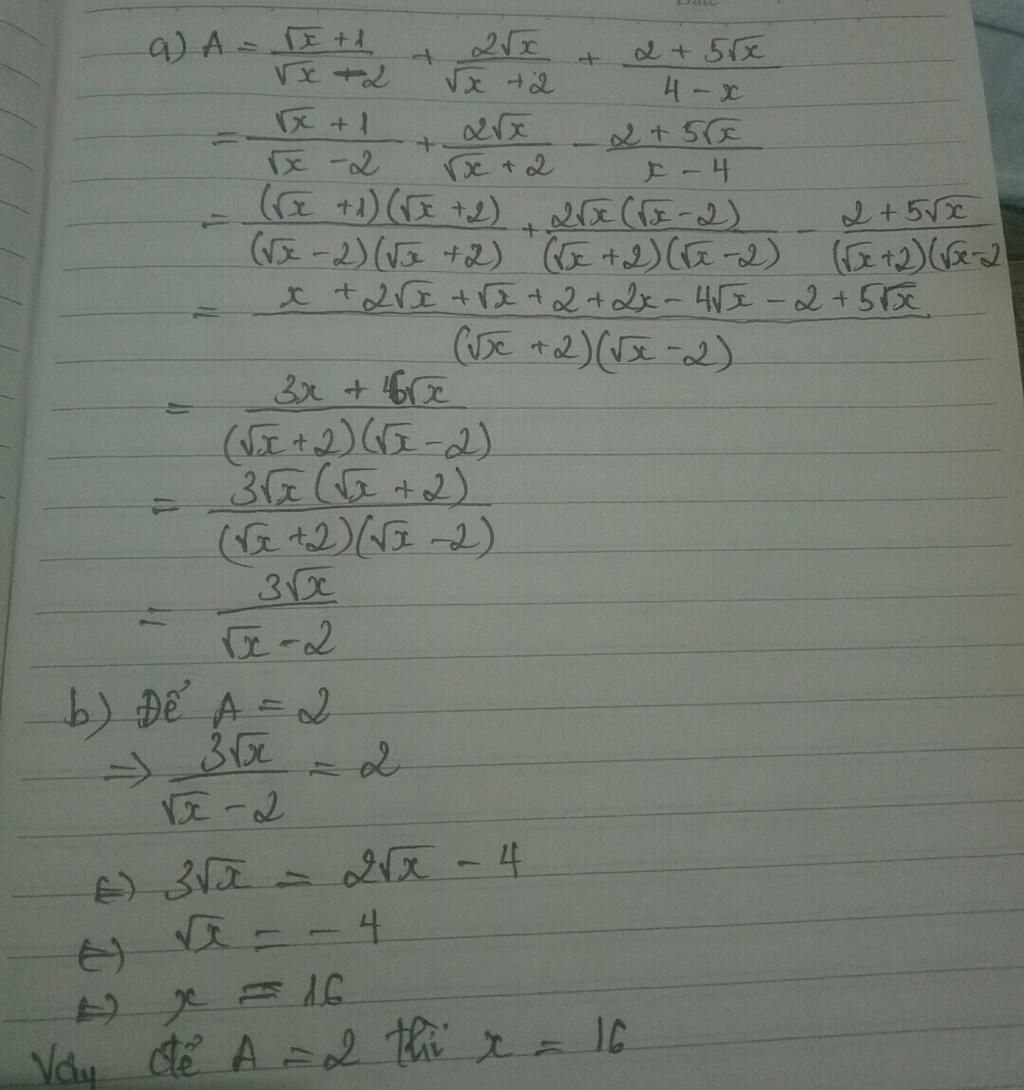 Date
a) A = (√x + 1)/(√x - 2) + 2√x/(√x + 2) + (2 + 5√x)/(4 - x)
= (√x + 1)/(√x - 2) + 2√x/(√x + 2) - (2 + 5√x)/(x - 4)
= (√x + 1)(√x + 2)/(√x - 2)(√x + 2) + 2√x(√x - 2)/(√x + 2)(√x - 2) - (2 + 5√x)/(√x + 2)(√x - 2
= (x + 2√x + √x + 2 + 2x - 4√x - 2 + 5√x)/(√x + 2)(√x - 2)
= (3x + 6√x)/(√x + 2)(√x - 2)
= 3√x(√x + 2)/(√x + 2)(√x - 2)
= 3√x/(√x - 2)
b) Để A = 2
=> 3√x/(√x - 2) = 2
(=) 3√x = 2√x - 4
(=) √x = - 4
(=) x = 16
Vậy để A = 2 thì x = 16